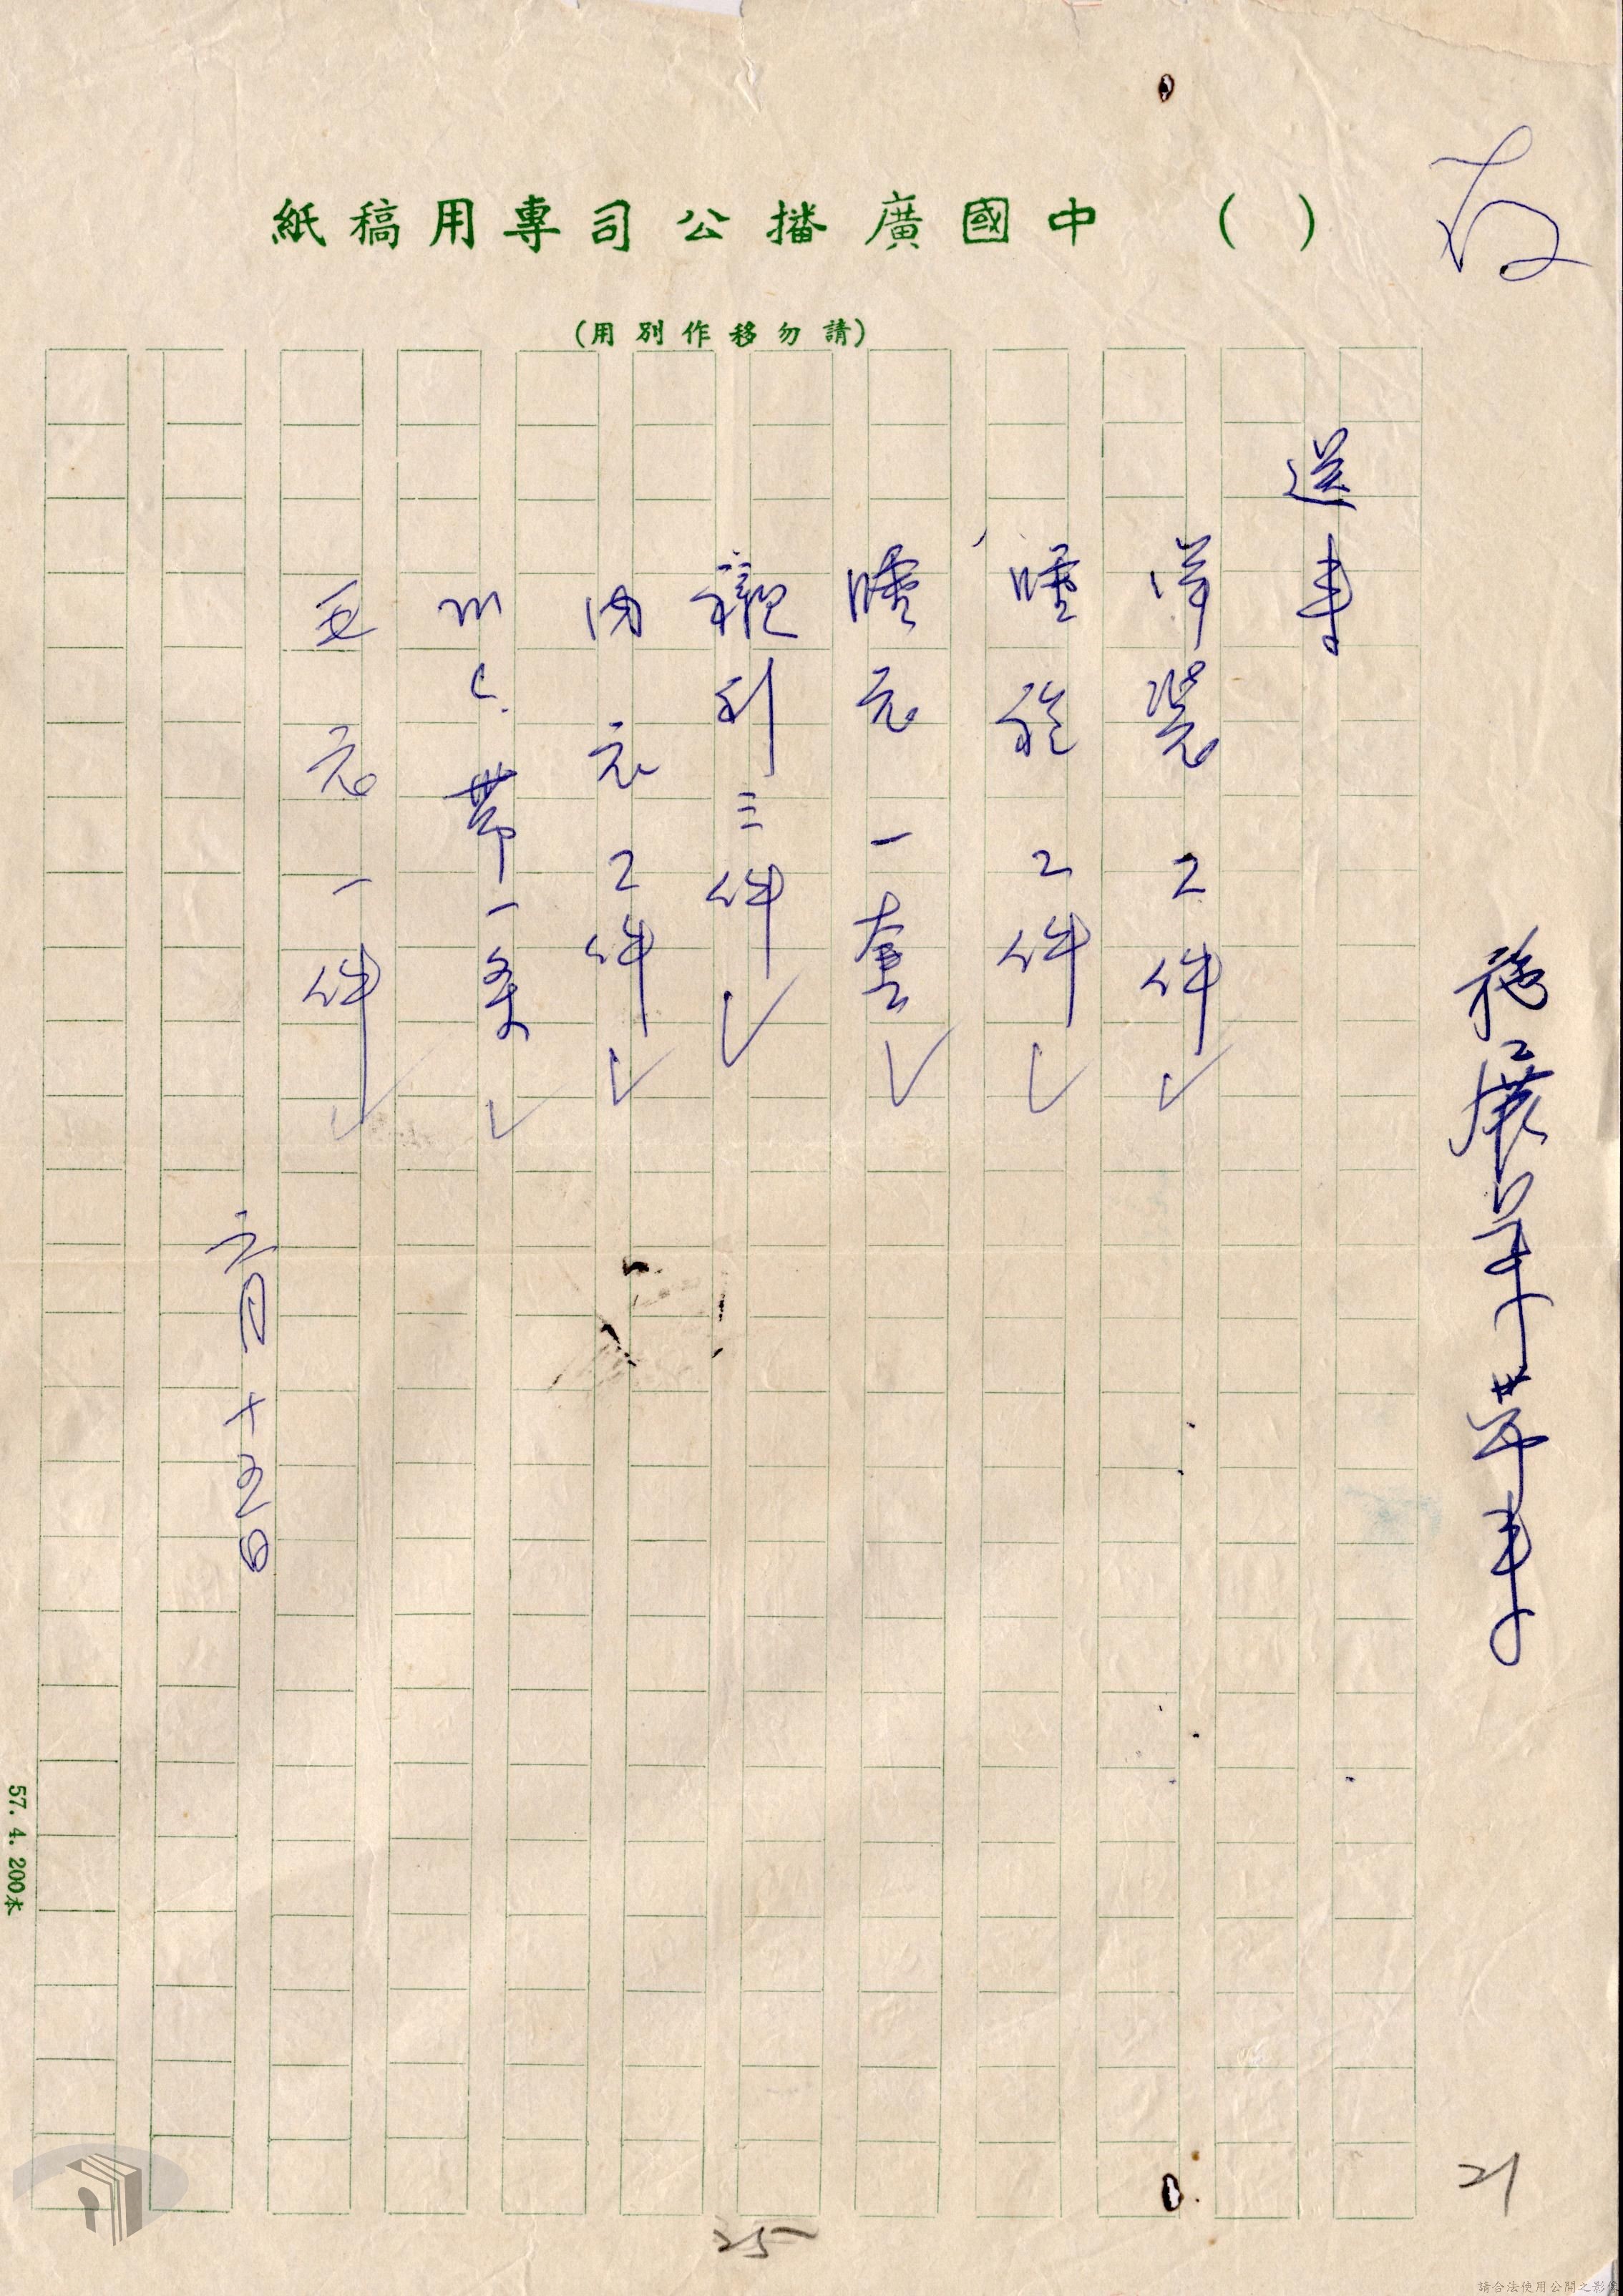 中國廣播公司專用稿紙 ( )
(請勿移作別用)
存
送来
洋裝2件✓
睡袍2件✓
睡衣一套✓
襯衫三件✓
內衣2件✓
帶一条✓
毛衣一件✓
六月十五日
57. 4. 200本
21
25
請合法使用公開之影